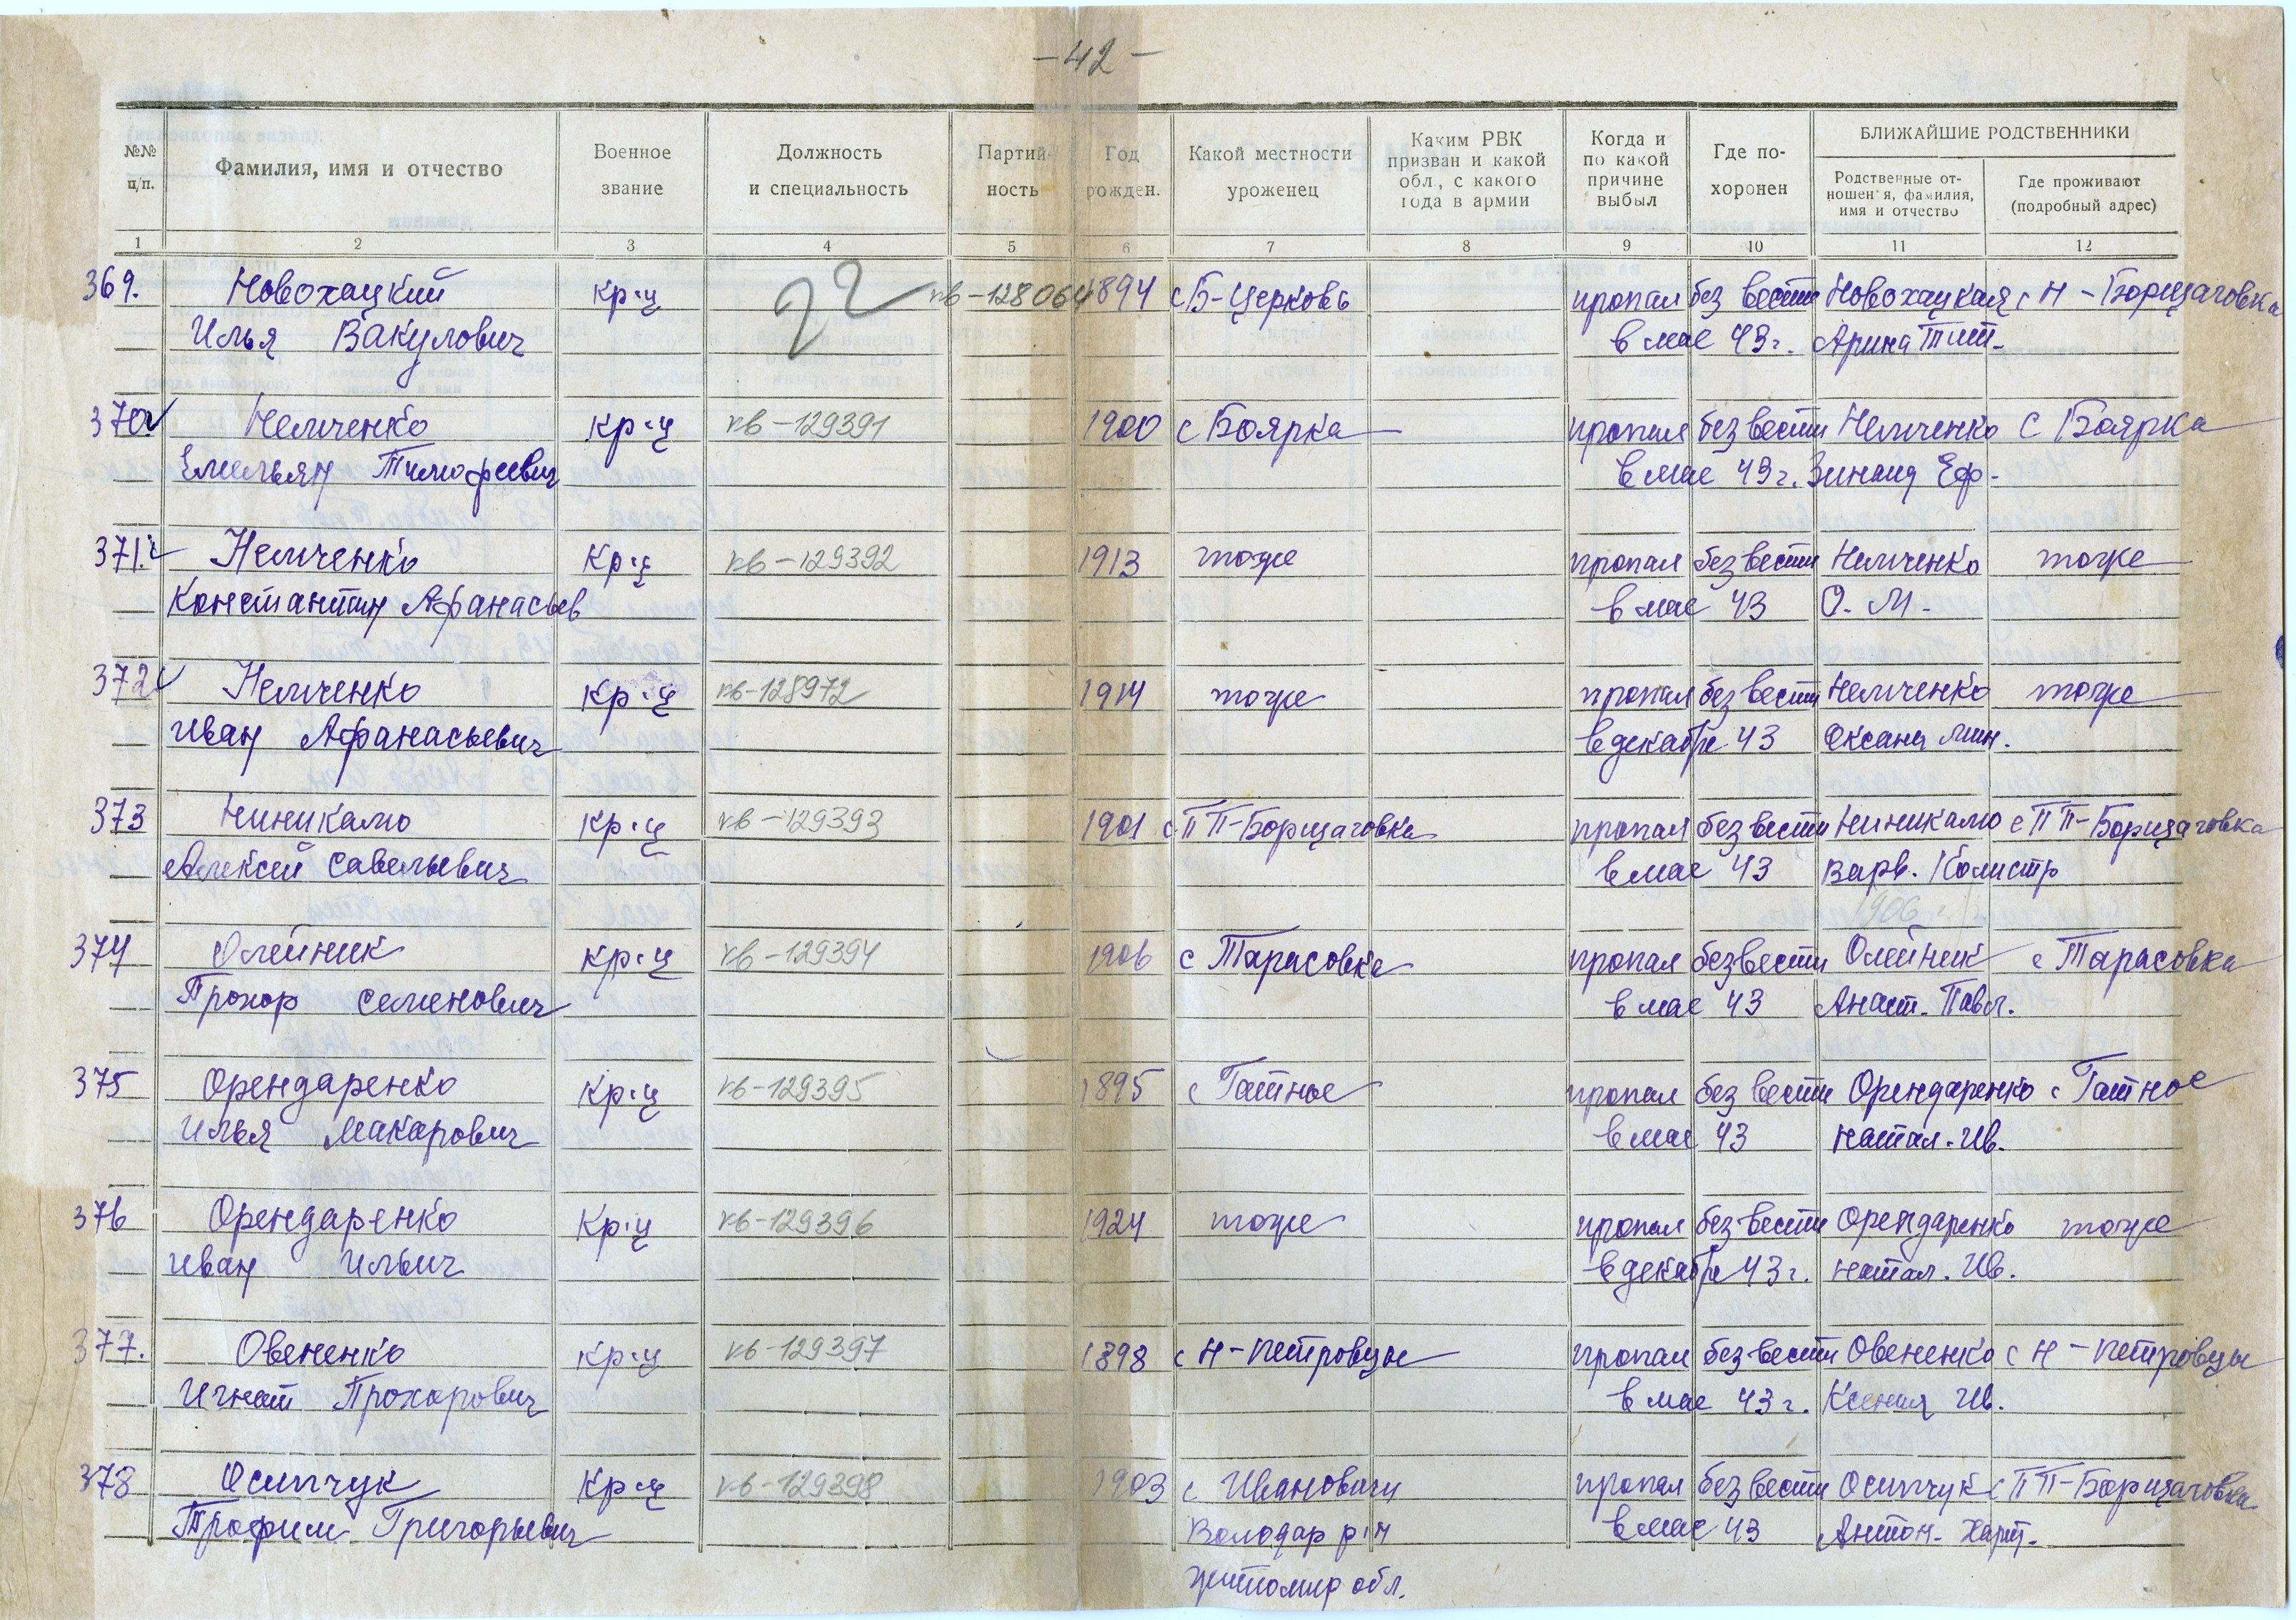 -42-
№№ п/п.
Фамилия, имя и отчество
Военное звание
Должность и специальность
Партий- ность
Год рожден.
Какой местности уроженец
Каким РВК призван и какой обл., с какого года в армии
Когда и по какой причине выбыл
Где по- хоронен
БЛИЖАЙШИЕ РОДСТВЕННИКИ
Родственные от- ношения, фамилия, имя и отчество
Где проживают (подробный адрес)
1 2 3 4 5 6 7 8 9 10 11 12
369. Новохацкий кр-ц кв-128064 1894 с Б-Церковь пропал без вести Новохацкая с Н-Борщаговка
Илья Вакулович в мае 43г. Арина Тит.
370 Немченко кр-ц кв-129391 1900 с Боярка пропал без вести Немченко с Боярка
Емельян Тимофеевич в мае 43г. Зинаид Еф.
371. Немченко кр-ц кв-129392 1913 тоже пропал без вести Немченко тоже
Константин Афанасьев в мае 43 О. М.
372 Немченко кр-ц кв-128972 1914 тоже пропал без вести Немченко тоже
Иван Афанасьевич в декабре 43 Оксана Мин.
373 Ниникало кр-ц кв-129393 1901 с ПП-Борщаговка пропал без вести Ниникало с ПП-Борщаговка
Алексей Савельевич в мае 43 Варв. Калистр
1906 г
374 Олейник кр-ц кв-129394 1906 с Тарасовка пропал без вести Олейник с Тарасовка
Прохор Семенович в мае 43 Анаст. Павл.
375 Орендаренко кр-ц кв-129395 1895 с Гатное пропал без вести Орендаренко с Гатное
Илья Макарович в мае 43 Натал. Ив.
376 Орендаренко кр-ц кв-129396 1924 тоже пропал без вести Орендаренко тоже
Иван Ильич в декабре 43г. Натал. Ив.
377. Овененко кр-ц кв-129397 1898 с Н-Петровцы пропал без вести Овененко с Н-Петровцы
Игнат Прохорович в мае 43г. Ксения Ив.
378 Осипчук кр-ц кв-129398 1903 с Ивановичи пропал без вести Осипчук с ПП-Борщаговка
Трофим Григорьевич Володар р-н в мае 43 Антон. Харит.
Житомир обл.